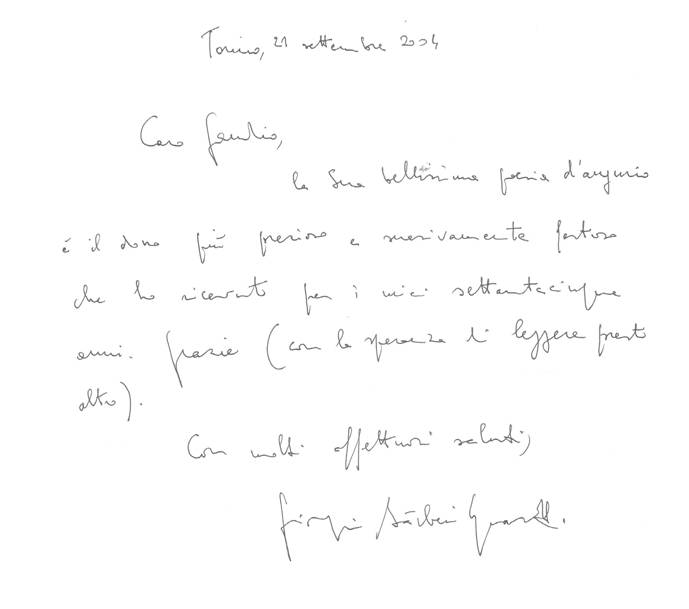 Torino, 21 settembre 2004
Caro
la Sua bellissima poesia d'augurio
è il dono più prezioso e festoso
che ho ricevuto per i miei settantacinque
anni. Grazie (con la speranza di leggere presto
altro).
Con molti affettuosi saluti,
Giorgio Bàrberi Squarotti.